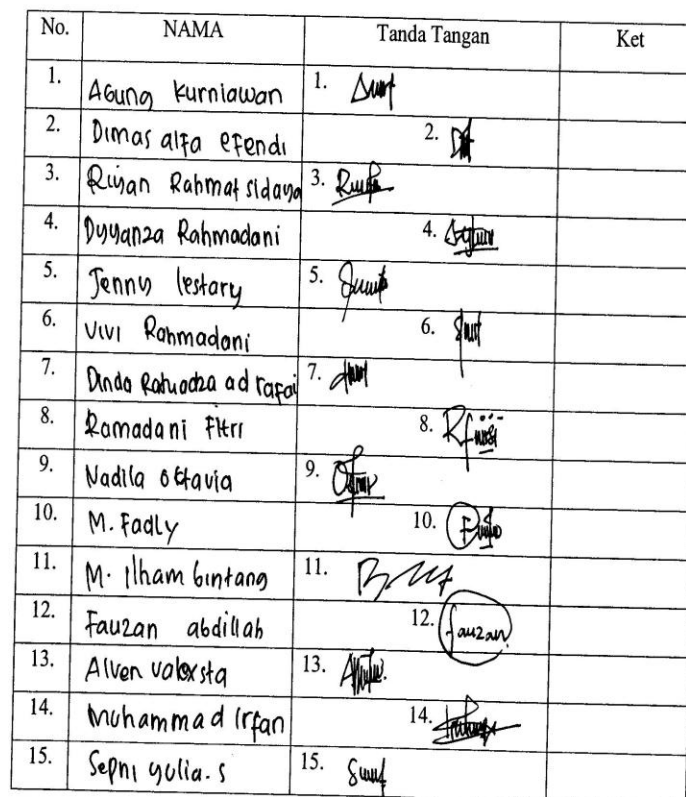 No. NAMA Tanda Tangan Ket
1. Agung Kurniawan 1.
2. Dimas alfa efendi 2.
3. Rahmat sidaya 3.
4. Rahmadani 4.
5. Jenny lestary 5.
6. Vivi Rahmadani 6.
7. Dinda 7.
8. Ramadani Fitri 8.
9. Nadila oktavia 9.
10. M. Fadly 10.
11. M. Ilham bintang 11.
12. Fauzan abdillah 12. fauzan
13. Alven 13.
14. Muhammad Irfan 14.
15. Sepni yulia. s 15.